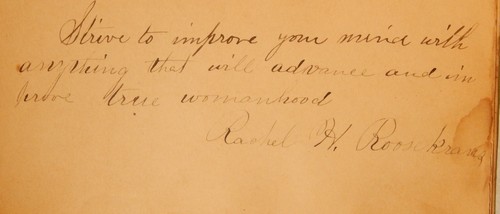 Strive to improve your mind with
anything that will advance and im
prove true womanhood
Rachel H. Roosekrans